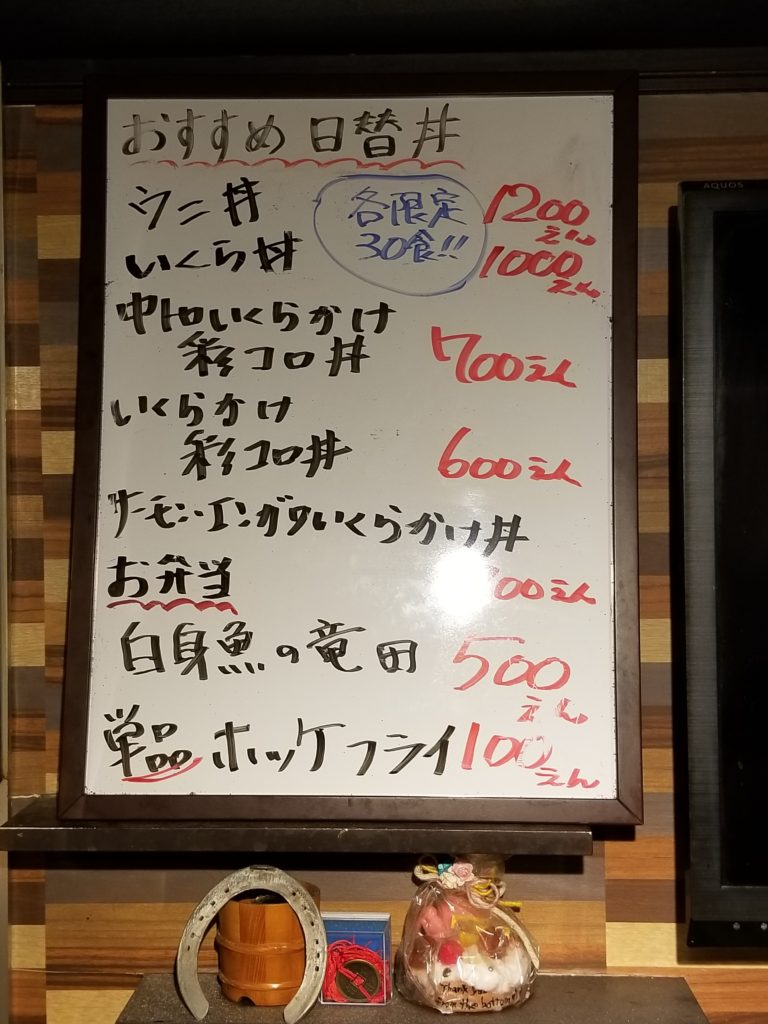 おすすめ 日替丼
ウニ丼 各限定 1200えん
いくら丼 30食!! 1000えん
中トロいくらかけ
彩コロ丼 700えん
いくらかけ
彩コロ丼 600えん
サーモン・エンガワいくらかけ丼
00えん
お弁当
白身魚の竜田 500えん
単品 ホッケフライ 100えん
AQUOS
Thank you
from the bottom